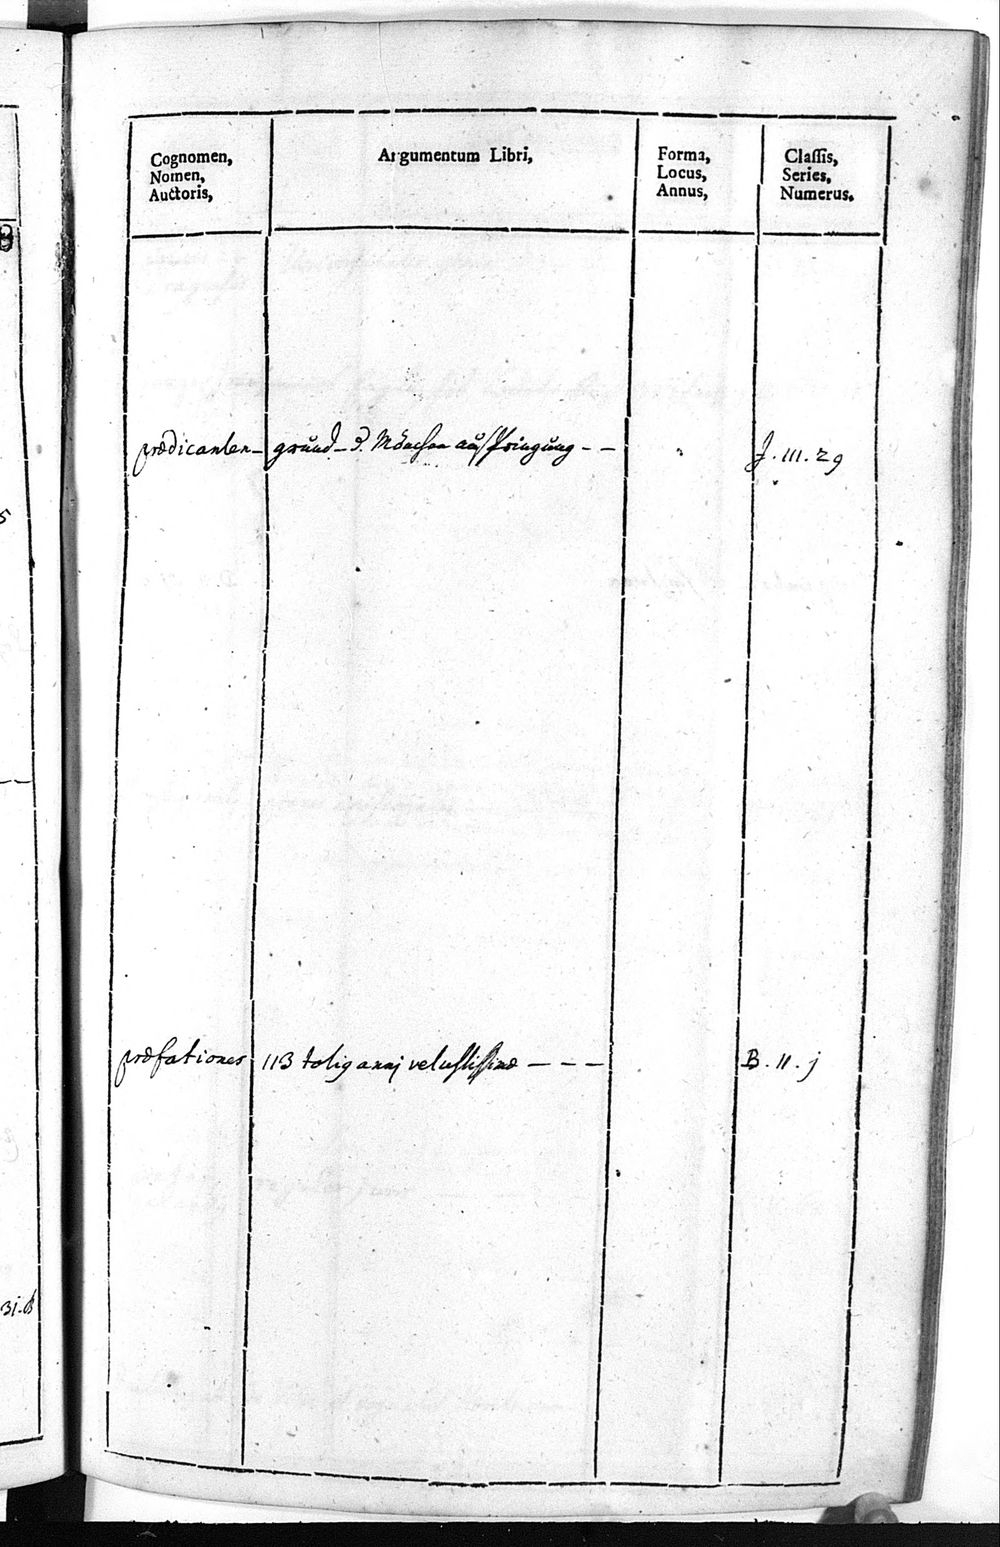 Cognomen,
Nomen,
Auctoris,
Argumentum Libri,
Forma,
Locus,
Annus,
Classis,
Series,
Numerus.
prædicanten – grund – d. Mönchen außspringung – – J. III. 29
præfationes 113 vetustissimæ – – – B. II. j
31. B